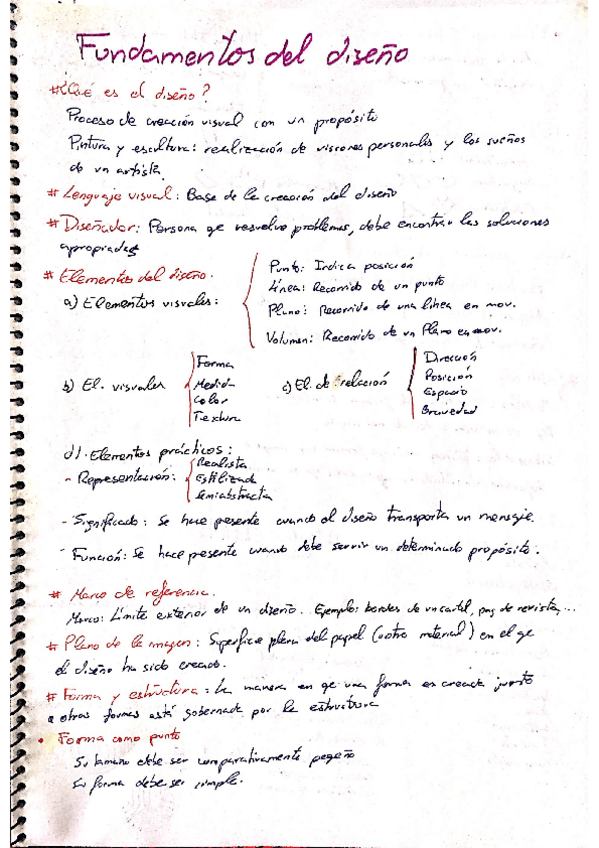 Fundamentos del diseño
# ¿Qué es el diseño?
Proceso de creación visual con un propósito
Pintura y escultura: realización de visiones personales y los sueños
de un artista.
# Lenguaje visual: Base de la creación del diseño
# Diseñador: Persona qe resuelve problemas, debe encontrar las soluciones
apropiadas
# Elementos del diseño.
a) Elementos visuales:
Punto: Indica posición
Línea: Recorrido de un punto
Plano: Recorrido de una línea en mov.
Volumen: Recorrido de un Plano en mov.
b) El. visuales
Forma
Medida
Color
Textura
c) El. de relación
Dirección
Posición
Espacio
Gravedad
d). Elementos prácticos:
- Representación:
Realista
Estilizada
Semiabstracta
- Significado: Se hace presente cuando el diseño transporta un mensaje.
- Función: Se hace presente cuando debe servir un determinado propósito.
# Marco de referencia.
Marco: Límite exterior de un diseño. Ejemplo: bordes de un cartel, pag de revista,...
# Plano de la imagen: Superficie plana del papel (u otro material) en el qe
el diseño ha sido creado.
# Forma y estructura: la manera en qe una forma es creada junto
a otras formas está gobernada por la estructura
• Forma como punto
Su tamaño debe ser comparativamente peqeño
Su forma debe ser simple.